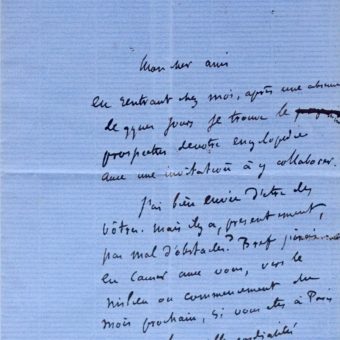 Mon cher ami
En rentrant chez moi, après une absence
de qques jours je trouve le
prospectus de votre encyclopédie
avec une invitation à y collaborer.
J'ai bien envie d'être des
vôtres. Mais il y a, présentement,
pas mal d'obstacles? Bref j'irais
en causer avec vous, vers le
milieu ou commencement du
mois prochain, si vous êtes à Paris
cordialité